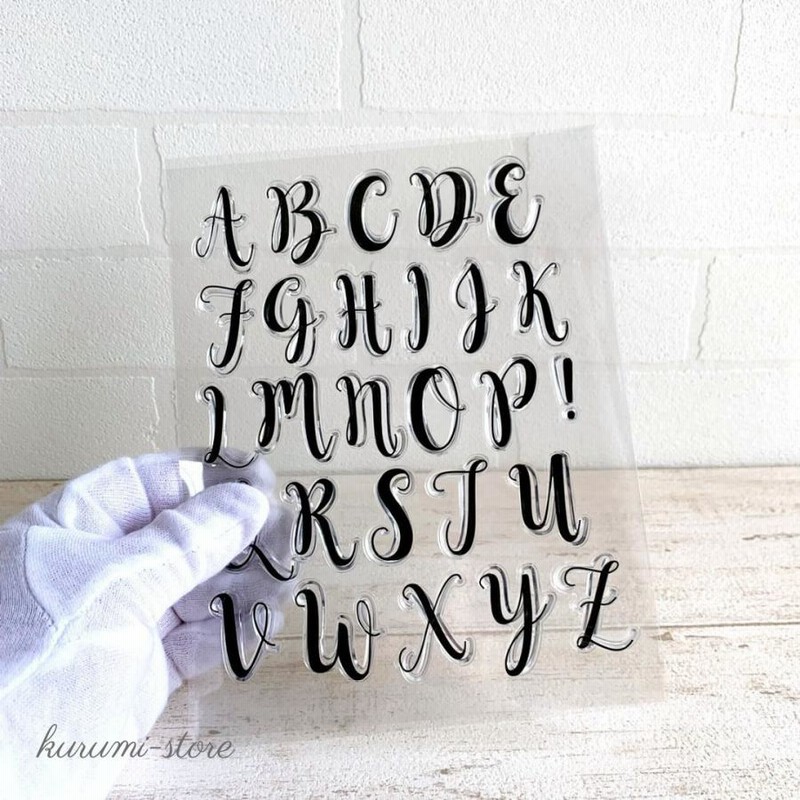 A B C D E
F G H I J K
L M N O P !
Q R S T U
V W X Y Z
kurumi-store